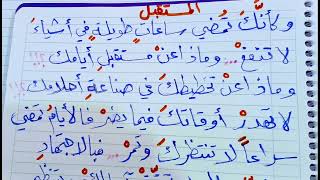 المستقبل
وكأنَّكَ تمضي ساعاتٍ طويلةٍ في أشياءَ
لا تنفعْ ... وماذا عنْ مستقبلِ أيامكَ ؟!!
وماذا عنْ تخطيطكَ في صناعةِ أحلامكَ
لا تهدرْ أوقاتكَ فيما يضرُّ فالأيامُ تمضي
سراعاً لا تنتظركَ وتمرُّ ... فبالاجتهادِ